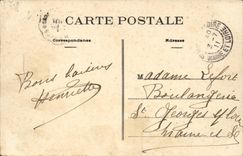 CARTE POSTALE
Correspondance
Adresse
Bons baisers
Henriette
Madame Lefort
Boulangerie
St Georges s/Loire
Maine et L